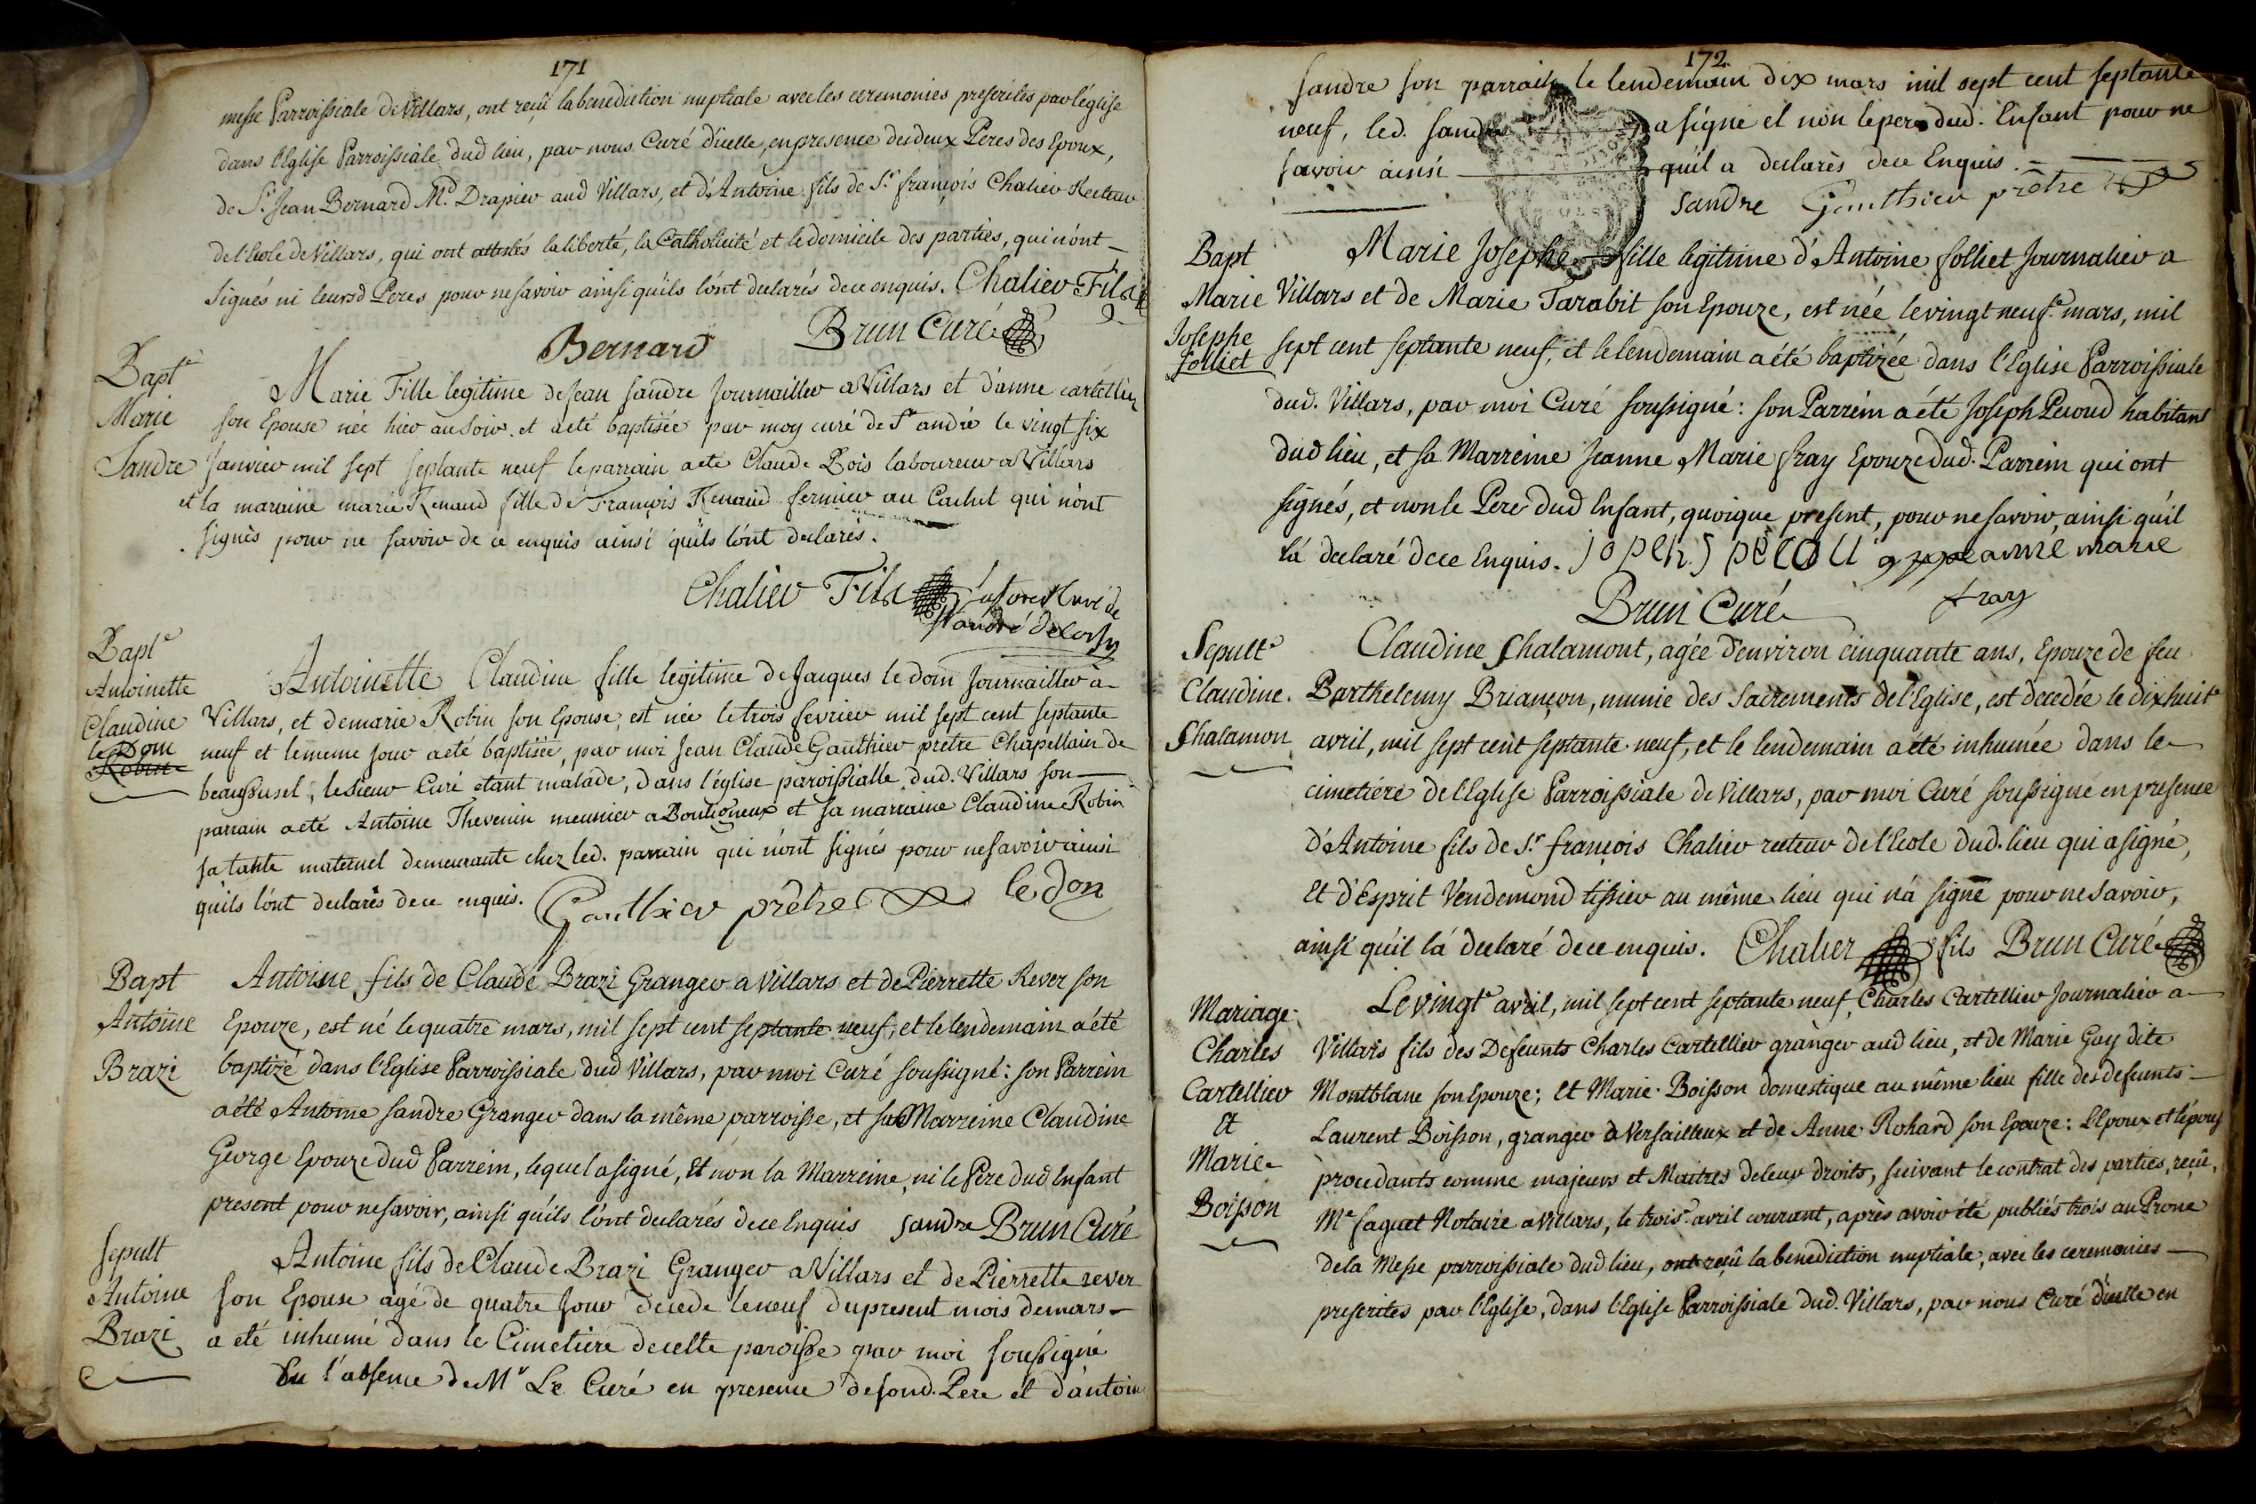 171
messe Parroissiale de Villars, ont reçû la benediction nuptiale avec les ceremonies prescrites par l'église
dans l'Eglise Parroissiale dud lieu, par nous Curé d'icelle, en presence des deux Peres des Epoux,
de Sr. Jean Bernard Md. Drapier aud Villars, et d'Antoine fils de Sr. françois Chalier Recteur
de l'Ecole de Villars, qui ont attestés la liberté, la Catholicité et le domicile des parties, qui n'ont
signés ni leursd Peres pour ne savoir ainsi qu'ils l'ont declarés de ce enquis. Chalier Fils
Bernard Brun Curé
Bapte
Marie
Sandre
Marie Fille legitime de Jean Sandre Journaillier a Villars et d'anne cartellier
son Epouse née hier au soir et a eté baptisée par moy curé de St andré le vingt six
Janvier mil sept septante neuf le parrain a eté Claude Bois laboureur a Villars
et la marraine marie Renaud fille de François Renaud fermier au Cachet qui n'ont
signés pour ne savoir de ce enquis ainsi qu'ils l'ont declarés.
Chalier Fils curé de
St andré
Bapte
Antoinette
Claudine
le Don
Robin
Antoinette Claudine fille legitime de Jacques le doin Journaillier à
Villars, et de marie Robin son Epouse, est née le trois fevrier mil sept cent septante
neuf et le meme jour a eté baptisée, par moi Jean Claude Gauthier prêtre Chapellain de
beaussusel, le Sieur Curé etant malade, dans l'église paroissialle dud. Villars son
parrain a eté Antoine Thevenin meunier a Bouligneux et sa marraine Claudine Robin
sa tante maternel demeurante chez led. parrain qui n'ont signés pour ne savoir ainsi
qu'ils l'ont declarés de ce enquis. Gauthier prêtre le don
Bapt
Antoine
Brazi
Antoine fils de Claude Brazi Granger a Villars et de Pierrette Rever son
Epouze, est né le quatre mars, mil sept cent septante neuf, et le lendemain a été
baptizé dans l'Eglise Parroissiale dud Villars, par moi Curé soussigné: son Parrein
a été Antoine Sandre Granger dans la même parroisse, et sa Marreine Claudine
George Epouze dud Parrein, lequel a signé, Et non la Marreine, ni le Pere dud Enfant
present pour ne savoir, ainsi qu'ils l'ont declarés de ce Enquis Sandre Brun Curé
Sepult
Antoine
Brazi
Antoine fils de Claude Brazi Granger a Villars et de Pierrette rever
son Epouse agé de quatre Jour decede le neuf du present mois de mars
a eté inhumé dans le Cimetiere de cette paroisse par moi soussigné
En l'absence de Mr Le Curé en presence de sond. Pere et d'antoine
172
Sandre son parrain le lendemain dix mars mil sept cent septante
neuf, led. Sandre a signé et non le pere dud. Enfant pour ne
savoir ainsi qu'il a declarés de ce Enquis.
Sandre Gauthier prêtre
Bapt
Marie
Josephe
folliet
Marie Josephe fille legitime d'Antoine folliet Journalier a
Villars et de Marie Tarabit son Epouze, est née le vingt neufe. mars, mil
sept cent septante neuf, et le lendemain a été baptizée dans l'Eglise Parroissiale
dud. Villars, par moi Curé soussigné: son Parrein a été Joseph Peroud habitant
dud lieu, et sa Marreine Jeanne Marie fray Epouze dud. Parrein qui ont
signés, et non le Pere dud Enfant, quoique present, pour ne savoir, ainsi qu'il
l'a declaré de ce Enquis. marie
fray
Brun Curé
Sepulte
Claudine
Chalamon
Claudine Chalamont, agée d'environ cinquante ans, Epouze de feu
Barthelemy Briançon, munie des Sacrements de l'Eglise, est decedée le dixhuite
avril, mil sept cent septante neuf, et le lendemain a été inhumée dans le
cimetiére de l'Eglise Parroissiale de Villars, par moi Curé soussigné en presence
d'Antoine fils de Sr. françois Chalier recteur de l'Ecole dud. lieu qui a signé,
Et d'Esprit Vendemond tissier au même lieu qui n'a signé pour ne savoir,
ainsi qu'il l'a declaré de ce enquis. Chalier fils Brun Curé
Mariage
Charles
Cartellier
Et
Marie
Boisson
Le vingte avril, mil sept cent septante neuf, Charles Cartellier Journalier a
Villars fils des Defeunts Charles Cartellier granger aud lieu, et de Marie Gay dite
Montblanc son Epouze; Et Marie Boisson domestique au même lieu fille des defeunts
Laurent Boisson, granger a Versailleux et de Anne Rohard son Epouze: L'Epoux et l'épouse
procedants comme majeurs et Maitres de leur droits, suivant le contrat des parties, reçû,
Me faguet Notaire a Villars, le troise avril courant, après avoir été publiés trois au Prone
de la Messe parroissiale dud lieu, ont reçû la benediction nuptiale, avec les ceremonies
prescrites par l'Eglise, dans l'Eglise Parroissiale dud. Villars, par nous Curé d'icelle en